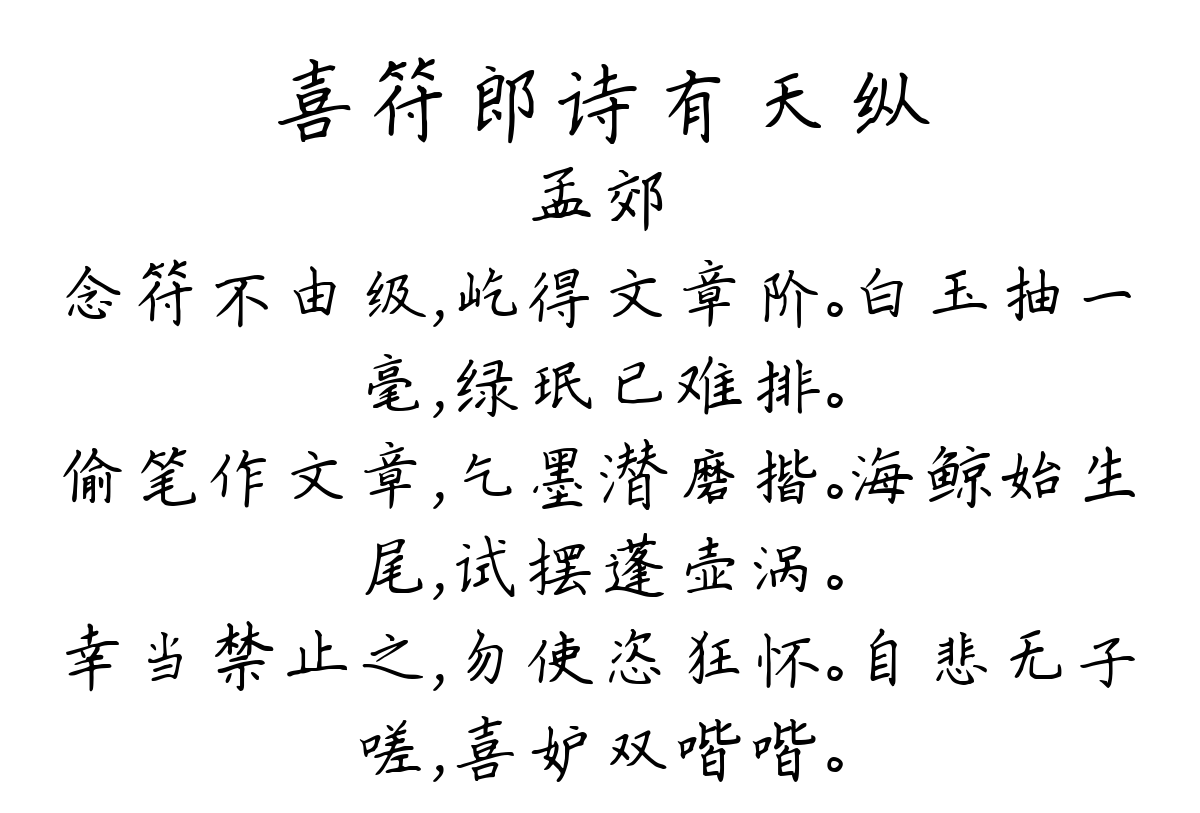 喜符郎诗有天纵
孟郊
念符不由级,屹得文章阶。白玉抽一
毫,绿珉已难排。
偷笔作文章,乞墨潜磨揩。海鲸始生
尾,试摆蓬壶涡。
幸当禁止之,勿使恣狂怀。自悲无子
嗟,喜妒双喈喈。